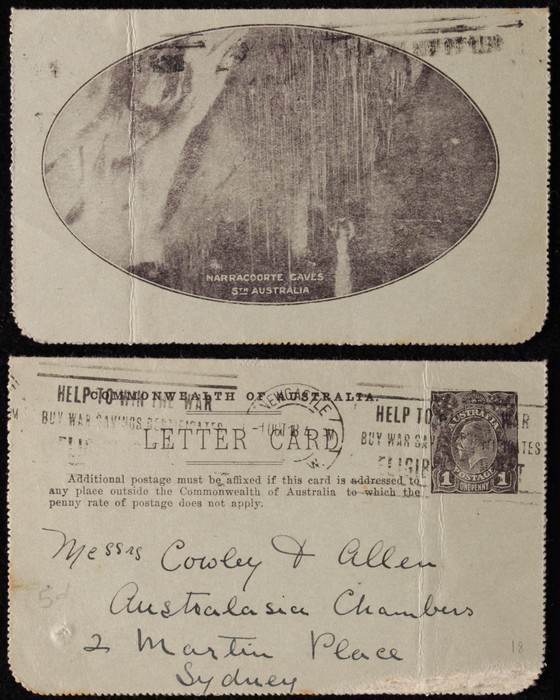 NARRACOORTE CAVES
5TH AUSTRALIA
COMMONWEALTH OF AUSTRALIA.
HELP TO WIN THE WAR
BUY WAR SAVINGS CERTIFICATES
LETTER CARD
HELP TO WAR
BUY WAR SAV TES
ELIGIB
AUSTRALIA
POSTAGE
1 ONE PENNY 1
Additional postage must be affixed if this card is addressed to
any place outside the Commonwealth of Australia to which the
penny rate of postage does not apply.
Messrs Cowley & Allen
Australasia Chambers
2 Martin Place
Sydney
5d
18